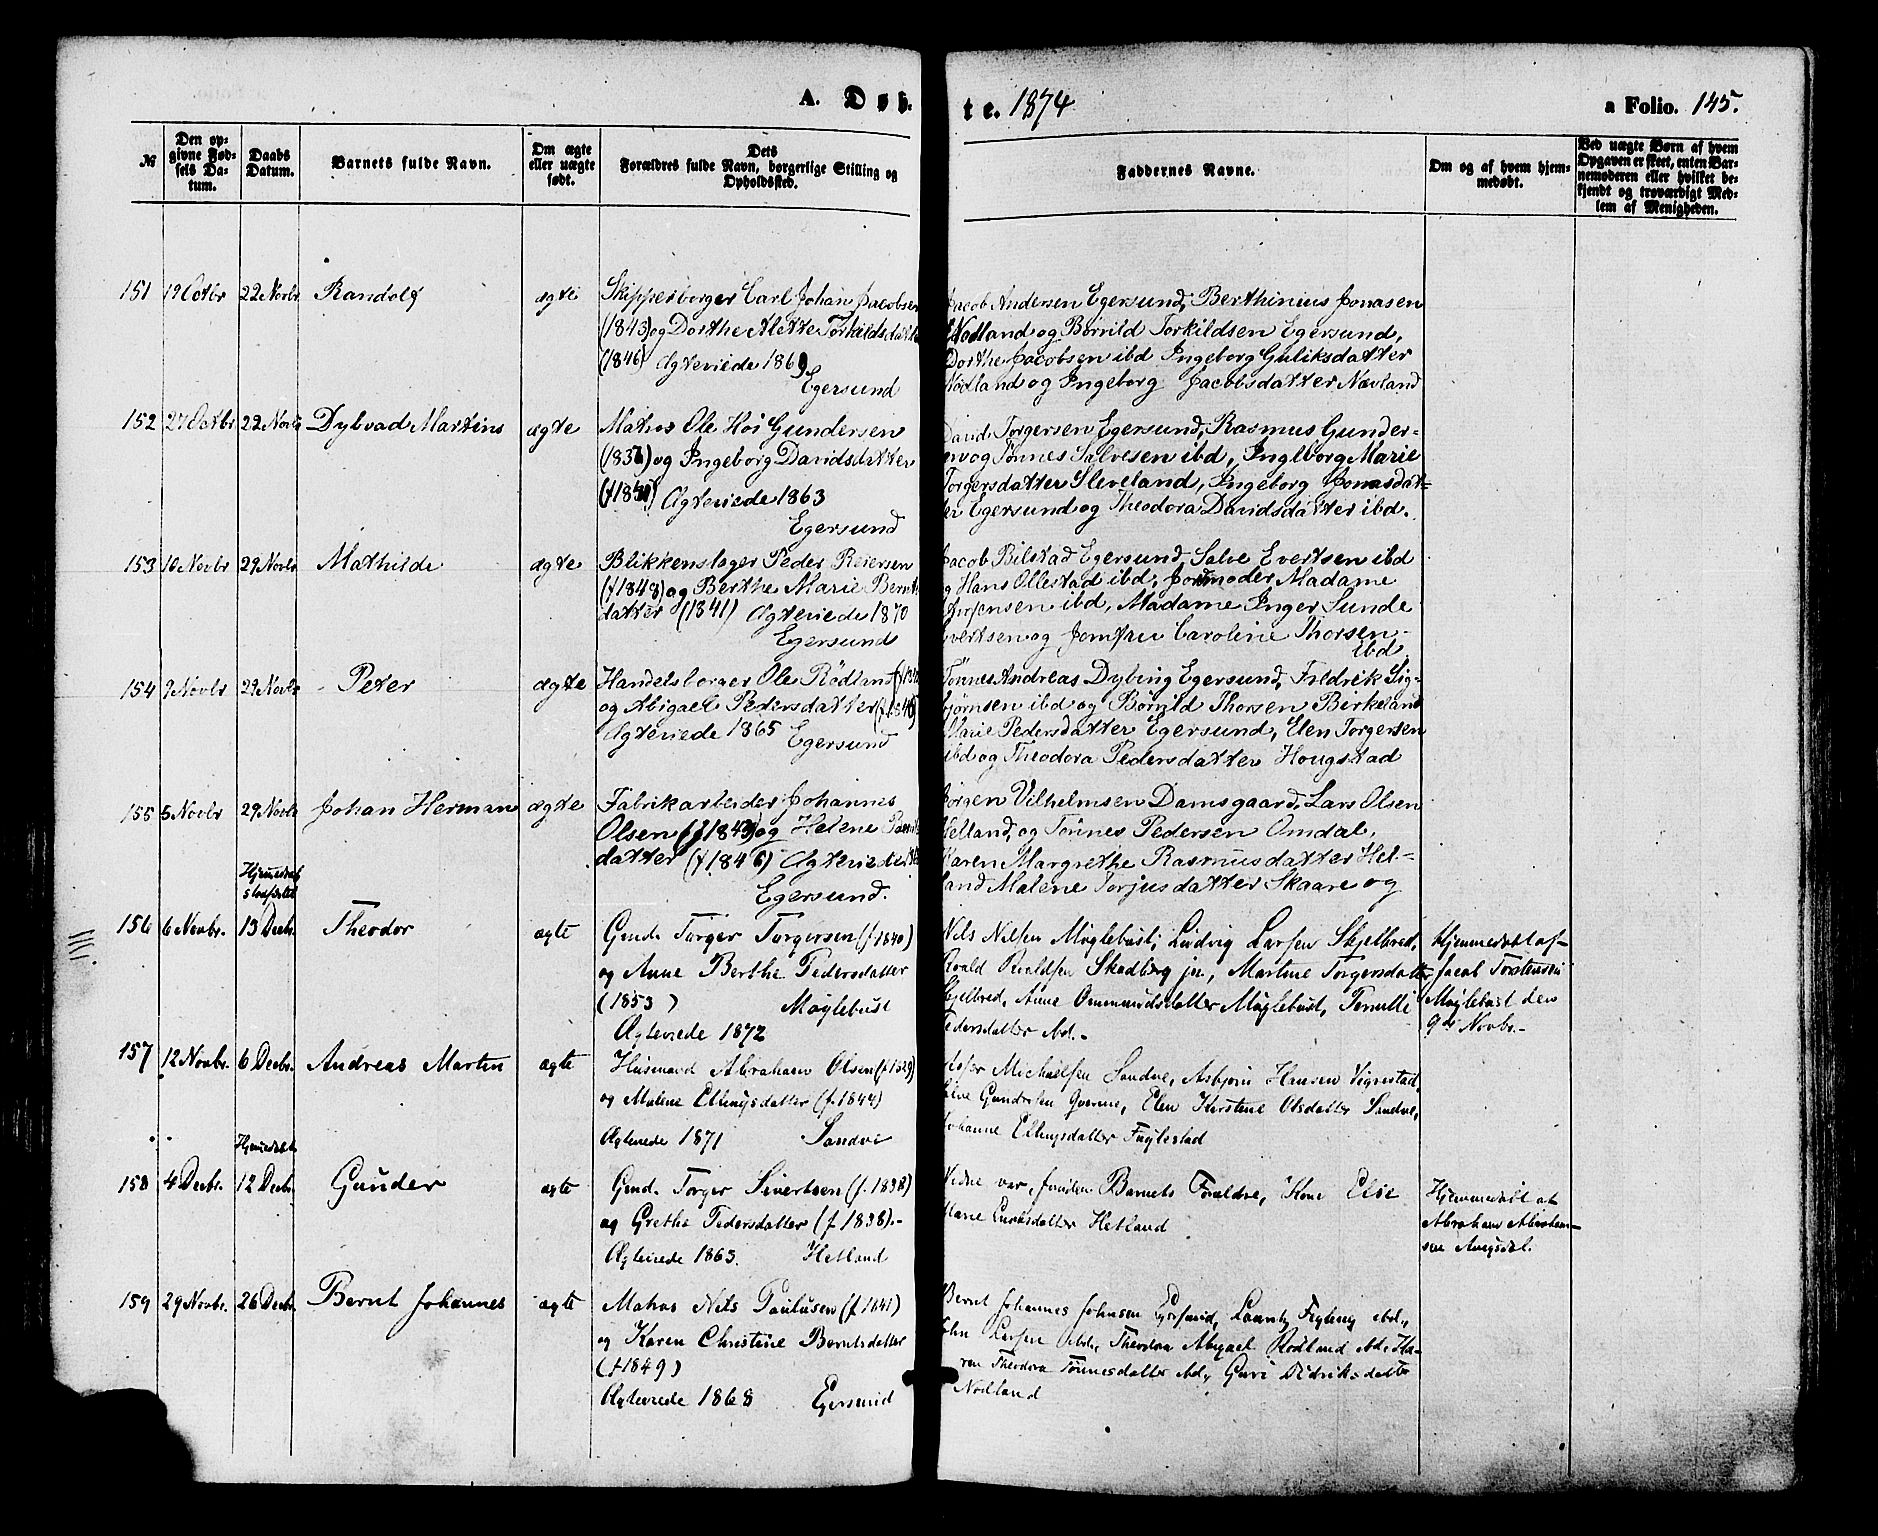 A. Døb-
te. 1874
a Folio. 145.
№
Den op-
givne Fød-
sels Da-
tum.
Daabs
Datum.
Barnets fulde Navn.
Om ægte
eller uægte
født.
Dets
Forældres fulde Navn, borgerlige Stilling og
Opholdssted.
Faddernes Navne.
Om og af hvem hjem-
medøbt.
Ved uægte Børn af hvem
Opgaven er skeet, enten Bar-
nemoderen eller hvilket be-
kjendt og troværdigt Med-
lem af Menigheden.
151 19 Octbr 22 Novbr Randolf ægte
Skipperborger Carl Johan Jacobsen
(1843) og Dorthe Alette Torkildsdatter
(1846) Ægteviede 1869
Egersund
Jacob Andersen Egersund, Berthinius Jonasen
Nødland og Bornild Torkildsen Egersund,
Dorthe Jacobsen ibd Ingeborg Guliksdatter
Nødland og Ingeborg Jacobsdatter Nævland
152 27 Octbr 22 Novbr Dybvad Martins ægte
Matros Ole Hoi Gundersen
og Ingeborg Davidsdatter
Ægteviede 1863
Egersund
David Torgersen Egersund, Rasmus Gunder-
sen og Tønnes Salvesen ibd, Inglborg Marie
Torgersdatter Sleveland, Ingeborg Jonasdat-
ter Egersund og Theodora Davidsdatter ibd.
153 10 Novbr 29 Novbr Mathilde ægte
Blikkenslager Peder Reiersen
(f 1848) og Berthe Marie Bernt
datter (1841) Ægteviede 1870
Egersund
Jacob Bilstad Egersund, Salve Evertsen ibd
og Hans Ollestad ibd, Jordmoder Madame
ibd, Madame Inger Sunde
Evertsen og Jomfru Caroline Thorsen
ibd
154 9 Novbr 29 Novbr Peter ægte
Handelsborger Ole Rødland
og Abigael Pedersdatter
Ægteviede 1865 Egersund
Tönnes Andreas Dybing Egersund, Fredrik Sig-
bjørnsen ibd og Bornild Thorsen Birkeland
Marie Pedersdatter Egersund, Elen Torgersen
ibd og Theodora Pedersdatter Hougstad
155 5 Novbr 29 Novbr Johan Herman ægte
Fabrikarbeider Johannes
Olsen (f 1843) og Helene
datter (f 1846) Ægteviede
Egersund.
Jörgen Vilhelmsen Damsgaard, Lars Olsen
Helland, og Tönnes Pedersen Omdal,
Karen Margrethe Rasmusdatter Hel-
land Malene Torjusdatter Skaare og
Hjemmedøbt
stadfæstet
156 6 Novbr. 13 Decbr. Theodor ægte
Gmd. Torger Torgersen (f 1840)
og Anne Berthe Pedersdatter
(1853) Møglebust
Ægteviede 1872
Nils Nilsen Møglebust, Ludvig Larsen Skjelbred,
Roald Roaldsen Skadberg jr, Martine Torgersdatter
Skjelbred, Anne Ommundsdatter Møglebust,
Pedersdatter ibd.
Hjemmedøbt af
Jacob Torstensen
Møglebust den
9de Novbr.
157 12 Novbr. 6 Decbr. Andreas Martin ægte
Husmand Abraham Olsen (f 1829)
og Malene Ellingsdatter (f. 1844)
Ægteviede 1871 Sandvi
Michaelsen Sandve, Asbjørn Hansen Vignestad,
Elen Kirstine Olsdatter Sandve,
Johanne Ellingsdatter Fuglestad
Hjemmedøbt
158 4 Decbr. 12 Decbr. Gunder ægte
Gmd. Torger Sivertsen (f. 1838)
og Grethe Pedersdatter (f 1838).
Ægteviede 1863. Hetland
Vidne var, foruden Barnets Forældre, Kone Else
Marie Lucasdatter Hetland
Hjemmedøbt af
Abraham Abraham-
sen
159 29 Novbr. 26 Decbr. Bernt Johannes ægte
Matros Nils Paulusen (f. 1841)
og Karen Christine Berntsdatter
(f 1849)
Ægteviede 1868 Egersund
Bernt Johannes Johnsen Egersund, ibd.,
John Larsen ibd., Theodora Abigael Rødland ibd., Ka-
ren Theodora Tönnesdatter ibd., Guri Didriksdatter
Nødland